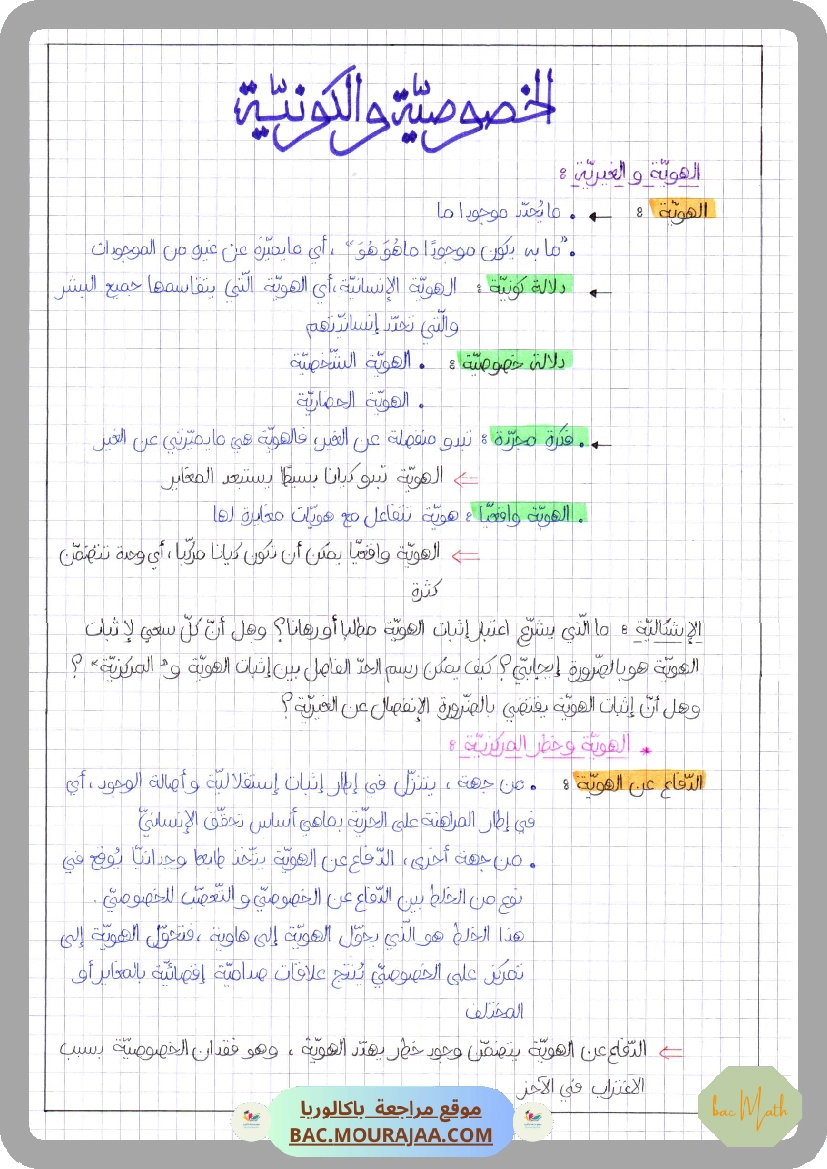 الخصوصيّة والكونيّة
الهويّة والغيريّة :
الهويّة : ← • ما يُحدّد موجودا ما
• "ما به يكون موجودًا ما هُوَ هُوَ" ، أي ما يميّزه عن غيره من الموجودات
← دلالة كونيّة : الهويّة الإنسانيّة، أي الهويّة الّتي يتقاسمها جميع البشر
والّتي تحدّد إنسانيّتهم
دلالة خصوصيّة : • الهويّة الشّخصيّة
• الهويّة الحضاريّة
← • فكرة مجرّدة : تبدو منفصلة عن الغير، فالهويّة هي ما يميّزني عن الغير
⇐ الهويّة تبدو كيانا بسيطا يستبعد المغاير
• الهويّة واقعيّا : هويّة تتفاعل مع هويّات مغايرة لها
⇐ الهويّة واقعيّا يمكن أن تكون كيانا مركّبا، أي وحدة تتضمّن
كثرة
الإشكاليّة : ما الّذي يشرّع اعتبار إثبات الهويّة مطلبا أو رهانا؟ وهل أنّ كلّ سعي لإثبات
الهويّة هو بالضّرورة إيجابيّ؟ كيف يمكن رسم الحدّ الفاصل بين إثبات الهويّة و"المركزيّة" ؟
وهل أنّ إثبات الهويّة يقتضي بالضّرورة الإنفصال عن الغيريّة؟
* الهويّة وخطر المركزيّة :
الدّفاع عن الهويّة : • من جهة ، يتنزّل في إطار إثبات إستقلاليّة وأصالة الوجود، أي
في إطار المراهنة على الحرّيّة بما هي أساس تحقّق الإنسانيّ
• من جهة أخرى، الدّفاع عن الهويّة يتّخذ طابعا وجدانيّا يُوقع في
نوع من الخلط بين الدّفاع عن الخصوصيّ والتّعصّب للخصوصيّ.
هذا الخلط هو الّذي يحوّل الهويّة إلى هاوية ،فتتحوّل الهويّة إلى
تمركز على الخصوصيّ يُنتج علاقات صداميّة إقصائيّة بالمغاير أو
المختلف
⇐ الدّفاع عن الهويّة يتضمّن وجود خطر يهدّد الهويّة ، وهو فقدان الخصوصيّة بسبب
الاغتراب في الآخر
موقع مراجعة باكالوريا
BAC.MOURAJAA.COM
bac Math